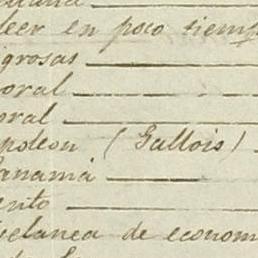 leer en poco tiemp
igrosas
oral
oral
apoleon (Gallois)
anamá
ento
celanea de econom